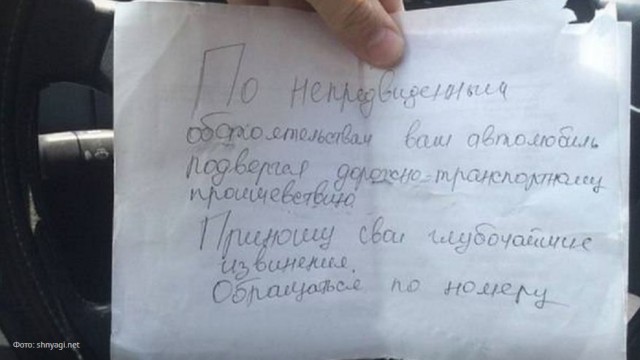 По непредвиденным
обстоятельствам ваш автомобиль
подвергся дорожно-транспортному
проишевствию
Приношу свои глубочайшие
извинения.
Обращаться по номеру
Фото: shnyagi.net